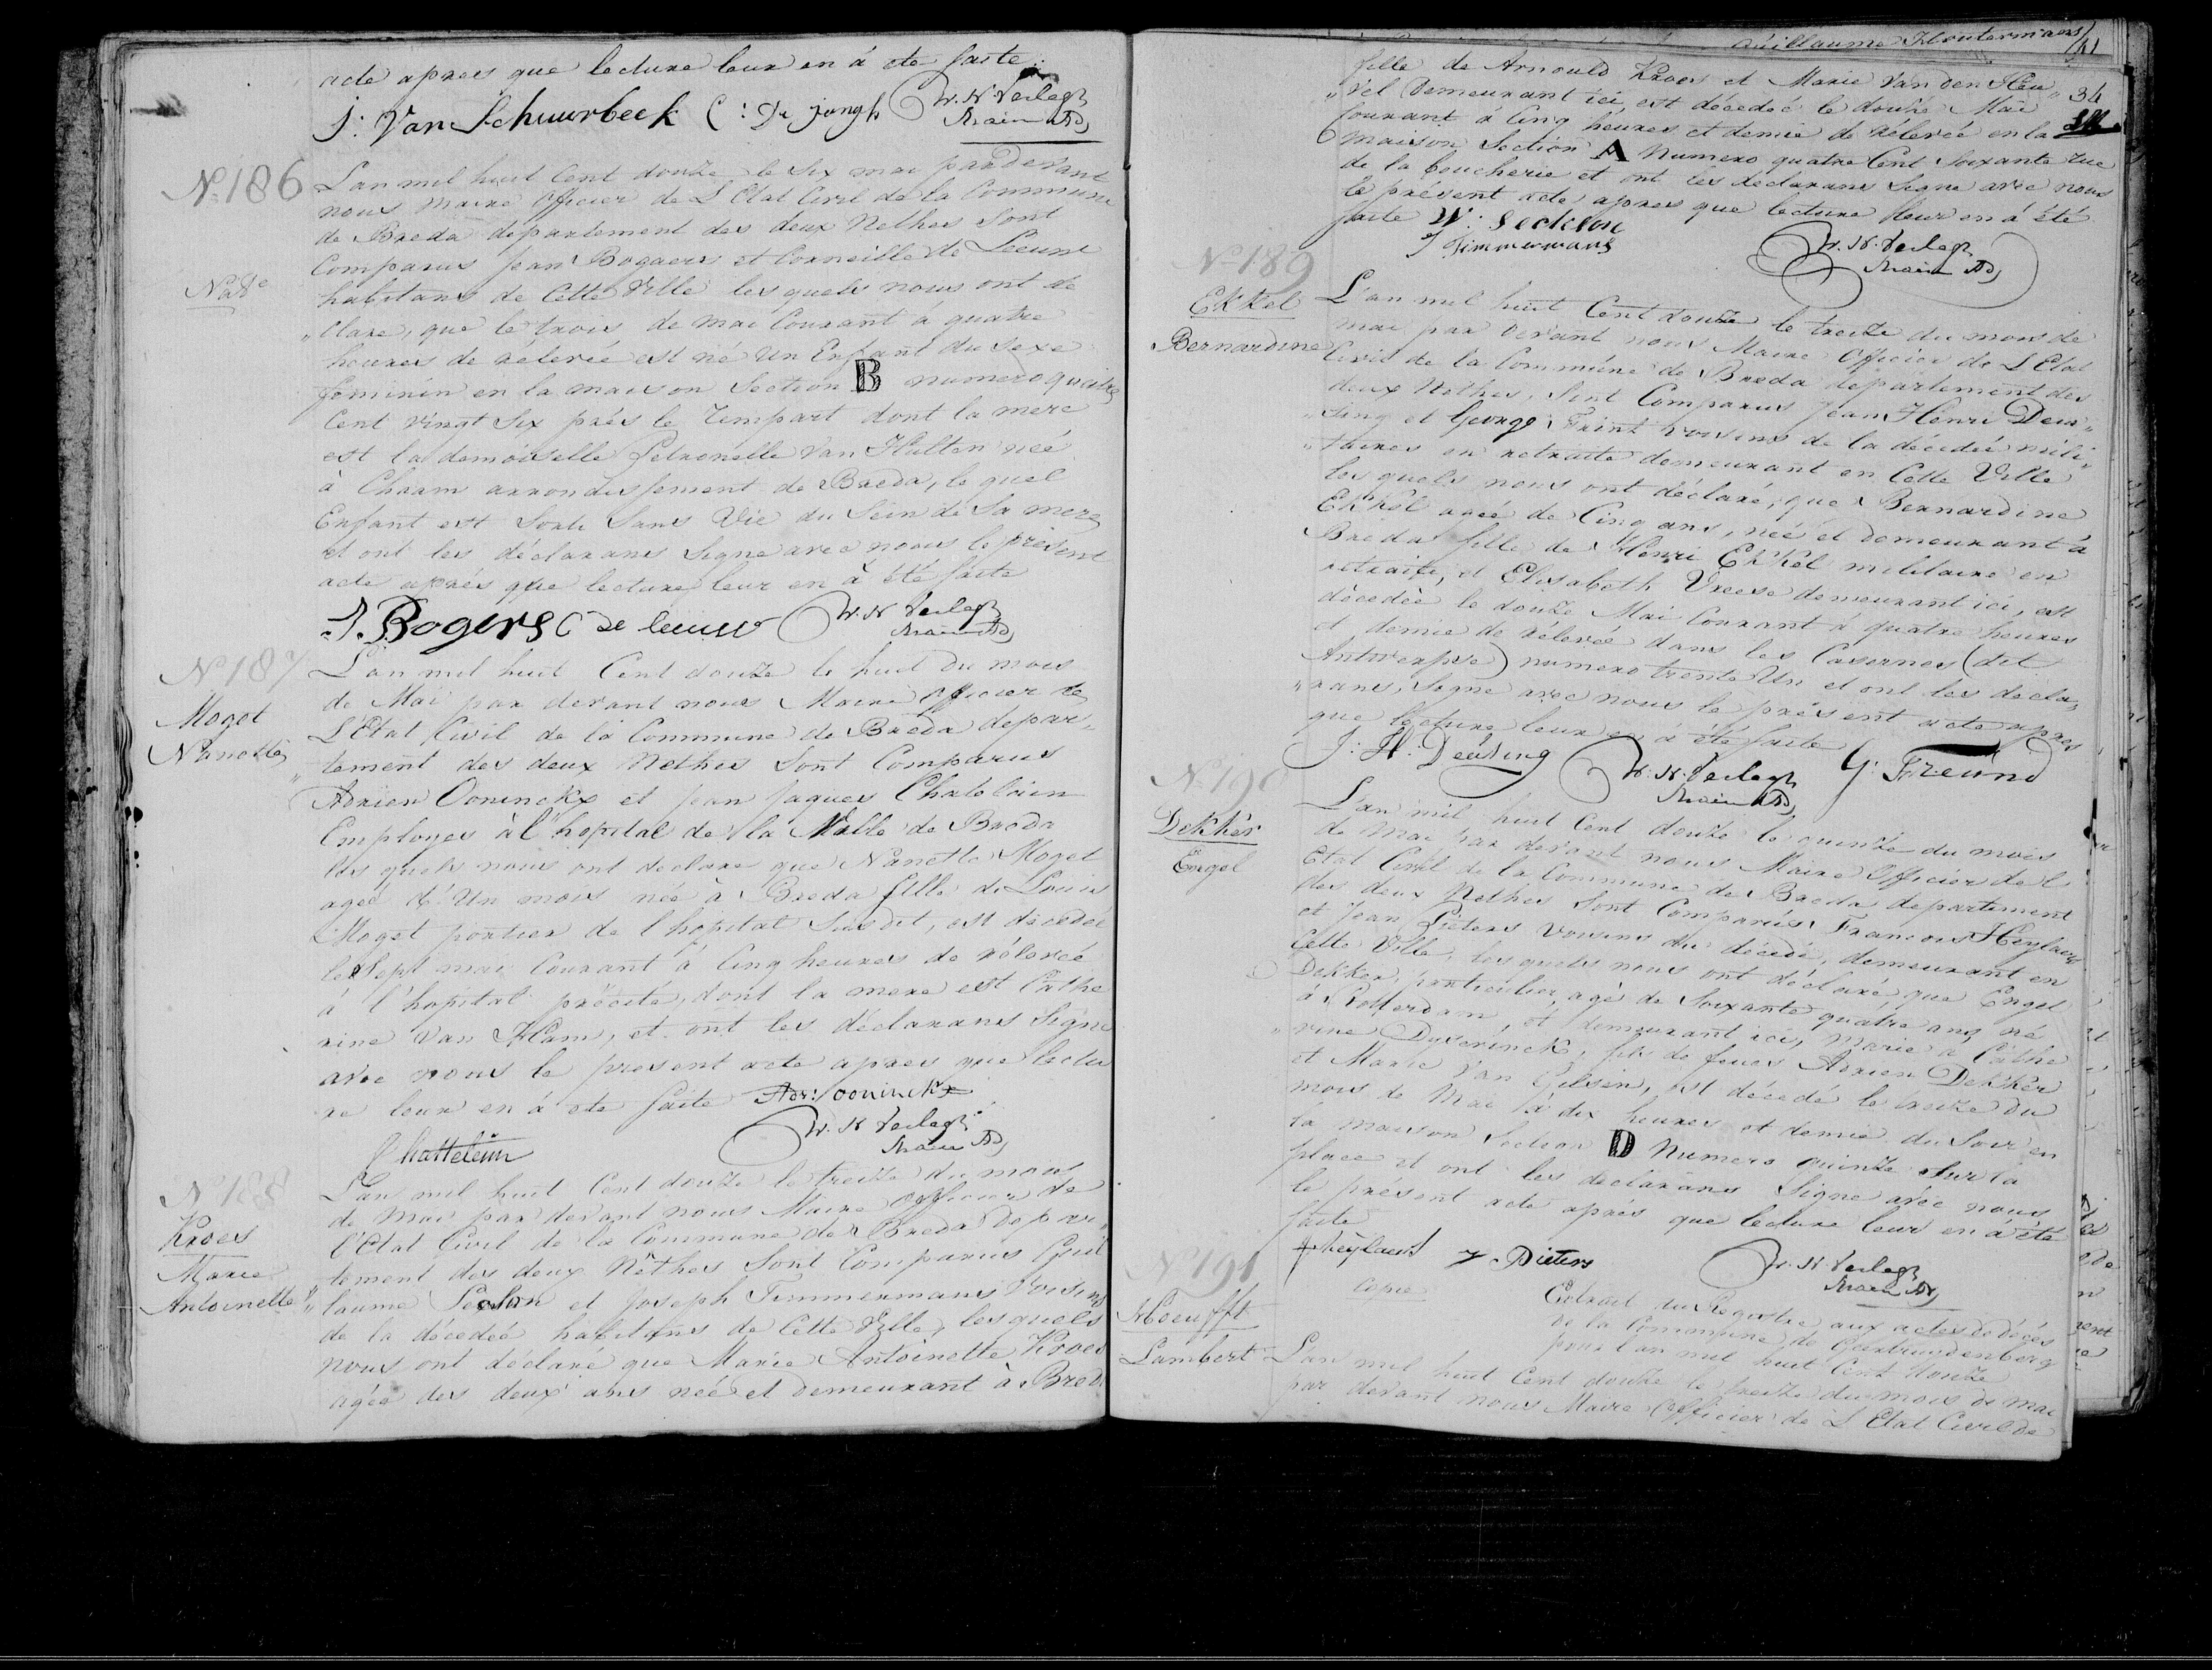 acte apres que lecture leur en á ete faite
J: Van Schuurbeek C: De Jongh W. H. Verlegh
Maire Adj
No 186
L'an mil huit Cent douze le Six mai par devant
nous Maire Officier de L'Etat Civil de la Commune
de Breda departement des deux Nethes Sont
Comparus Jean Bogaers et Corneille de Leeuw
habitans de Cette Ville les quels nous ont de
„clare, que le trois de mai Courant á quatre
heures de relevée est né Un Enfant du Sexe
feminin en la maison Section B numero quatre
Cent vingt Six prés le rempart dont la mere
est la demoiselle Petronelle Van Hulten neé
à Chaam arrondissement de Breda, le quel
Enfant est Sorti Sans Vie du Sein de Sa mere
et ont les déclarans Signe avec nous le présent
acte aprés que lecture leur en à été faite
J. Bogers C de leeuw W. H Verlegh
Maire Adj
No 187
Mogot
Nanette
L'an mil huit Cent douze le huit du mois
de Mai par devant nous Maire Officier de
L'Etat Civil de la Commune de Breda depar„
„tement des deux Nethes Sont Comparus
AdrienOoninckx et Jean Jaques Chatelain
Employes à l'hopital de la Ville de Breda
les quels nous ont declare que Nanette Mogot
ageé d'Un mois née à Breda fille de Louis
Mogot portier de l'hopital Susdit, est decedeé
le Sept mai Courant à Cinq heures de rélevée
á l'hopital précité, dont la mere est Cathe
rine Van Ham, et ont les déclarans Signe
avec nous le present acte apres que lectu
re leur en á ete faite Adr: Ooninckx
W. H Verlegh
Maire Adj
Chattelein
No 188
Kroes
Marie
Antoinette
L'an mil huit Cent douze le treize du mois
de Mai par devant nous Maire Officier de
l'Etat Civil de la Commune de Breda depar„
tement des deux Nethes Sont Comparus Guil
„laume et Joseph Timmermans Voisins
de la décedeé habitans de Cette Ville, les quels
nous ont déclaré que Marie Antoinette Kroes
agée des deux ans née et demeurant à Breda
Guillaume Houtermans
41
34
fille de Arnould Kroes et Marie Van den Heu„
„vel Demeurant ici, est décedeé le douze Mai
Courant à Cinq heures et demie de rélevée en la
maison Section A Numero quatre Cent Soixante rue
de la boucherie et ont les declarans Signe avec nous
le présent acte apres que lecture leur en á été
faite W:
J Timmermans W. H. Verlegh
Maire Adj
No 189
Ekkel
Bernardine
L'an mil huit Cent douze le treize du mois de
mai par devant nous Maire Officier de L'Etat
Civil de la Commune de Breda departement des
deux Nethes, Sont Comparus Jean Henri Deu„
„sing et George Freint voisins de la décedée mili„
„taires en retraite demeurant en Cette Ville
les quels nous ont déclaré, que Bernardine
Ekkel ageé de Cinq ans, née et demeurant á
Breda fille de Henri Ekkel militaire en
retraite, et Elisabeth Vreese demeurant ici, est
décedée le douze Mai Courant á quatre heures
et demie de rélevée dans les Casernes (dit
Antwerpse) numero trente Un, et ont les decla„
„rans, Signe avec nous le présent acte apres
que lecture leur en à été faite
J: H: Deusing W. H. Verlegh G: Freund
Maire Adj
No 190
Dekker
Engel
L'an mil huit Cent douze le quinze du mois
de Mai par devant nous Maire Officier de l'
Etat Civil de la Commune de Breda departement
des deux Nethes Sont Comparus Francois Heylaers
et Jean Pieters Voisins du décedé, demeurant en
Cette Ville, les quels nous ont déclaré que Engel
Dekker, particulier, agé de Soixante quatre ans né
á Rotterdam, et demeurant ici, Marié a Cathe
„rine Dyserinck, fils de feues Adrien Dekker
et Marie Van Pelsin, est décedé le treize du
mois de Mai à dix heures et demie du Soir en
la maison Section D Numero quinze Sur la
place et ont les declarans Signe avec nous
le présent acte aprés que lecture leur en á été
faite
fheylaers J. Pieters W. H Verlegh
Maire Adj
No 191
Hoeufft
Lambert
Copie
Extrait du Registre aux actes de décés
de la Commune de Gertruidenberg
pour l'an mil huit Cent douze
L'an mil huit Cent douze le treize du mois de mai
par devant nous Maire Officier de L'Etat Civil de